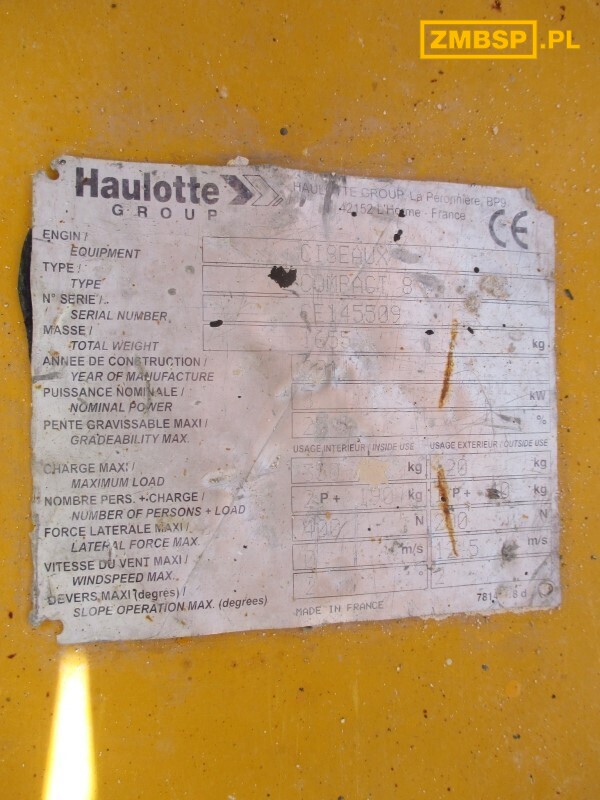 ZMBSP.PL
Haulotte
GROUP
HAULOTTE GROUP, La Péronnière, BP9
42152 L'Horme - France
CE
ENGIN /
EQUIPMENT CISEAUX
TYPE /
TYPE COMPACT 8
N° SERIE /
SERIAL NUMBER CE145509
MASSE /
TOTAL WEIGHT kg
ANNEE DE CONSTRUCTION /
YEAR OF MANUFACTURE
PUISSANCE NOMINALE /
NOMINAL POWER kW
PENTE GRAVISSABLE MAXI /
GRADEABILITY MAX. %
USAGE INTERIEUR / INSIDE USE USAGE EXTERIEUR / OUTSIDE USE
CHARGE MAXI /
MAXIMUM LOAD kg kg
NOMBRE PERS. + CHARGE /
NUMBER OF PERSONS + LOAD 2 P + 190 kg P + kg
FORCE LATERALE MAXI /
LATERAL FORCE MAX. 400 N 200 N
VITESSE DU VENT MAXI /
WINDSPEED MAX. 0 m/s m/s
DEVERS MAXI (degrés) /
SLOPE OPERATION MAX. (degrees) 2 2
MADE IN FRANCE